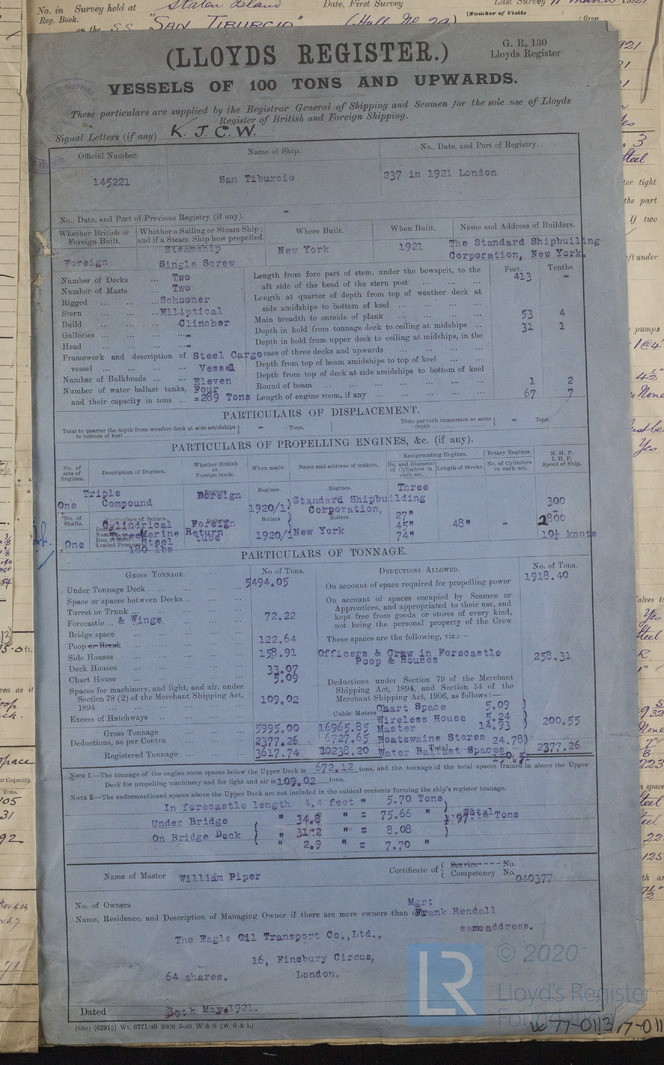 No. in Survey held at Staten Island Date, First Survey Last Survey
Reg. Book. (Number of Visits
on the S.S. "SAN TIBURCIO" (Gross
(LLOYDS REGISTER.)
G. R. 130
Lloyds Register
VESSELS OF 100 TONS AND UPWARDS.
These particulars are supplied by the Registrar General of Shipping and Seamen for the sole use of Lloyds
Register of British and Foreign Shipping.
Signal Letters (if any) K. J. C. W.
Official Number. Name of Ship. No., Date, and Port of Registry.
145221 San Tiburcio 237 in 1921 London
No., Date, and Port of Previous Registry (if any). -
Whether British or Foreign Built. Whether a Sailing or Steam Ship; and if a Steam Ship how propelled. Where Built. When Built. Name and Address of Builders.
Foreign Steamship Single Screw New York 1921 The Standard Shipbuilng Corporation, New York.
Feet Tenths
Number of Decks ... Two
Number of Masts ... Two
Rigged ... Schooner
Stern ... Elliptical
Build ... Clincher
Galleries ... -
Head ... -
Framework and description of vessel ... Steel Cargo Vessel
Number of Bulkheads ... Eleven
Number of water ballast tanks, and their capacity in tons ... Four =289 Tons
Length from fore part of stem, under the bowsprit, to the aft side of the head of the stern post 413 -
Length at quarter of depth from top of weather deck at side amidships to bottom of keel
Main breadth to outside of plank 53 4
Depth in hold from tonnage deck to ceiling at midships 31 1
Depth in hold from upper deck to ceiling at midships, in the case of three decks and upwards
Depth from top of beam amidships to top of keel
Depth from top of deck at side amidships to bottom of keel
Round of beam 1 2
Length of engine room, if any 67 7
PARTICULARS OF DISPLACEMENT.
Total to quarter the depth from weather deck at side amidships to bottom of keel - Tons. Ditto per inch immersion at same depth - Tons.
PARTICULARS OF PROPELLING ENGINES, &c. (if any).
No. of sets of Engines. Description of Engines. Whether British or Foreign made. When made. Name and address of makers. Reciprocating Engines. No. and Diameter of Cylinders in each set. Length of Stroke. Rotary Engines. No. of Cylinders in each set. N. H. P. I. H. P. Speed of Ship.
One Triple Compound Foreign Engines. 1920/1 Engines. Standard Shipbuilding Corporation, Three 27" 45" 74" 48" - 300
2800
10½ knots
No. of Shafts. One Cylindrical Marine Return tube Steel 180 lbs Foreign Boilers 1920/1 Boilers New York
PARTICULARS OF TONNAGE.
GROSS TONNAGE. No. of Tons. DEDUCTIONS ALLOWED. No. of Tons.
Under Tonnage Deck 5494.05
Space or spaces between Decks
Turret or Trunk
Forecastle & Wings 72.22
Bridge space 122.64
Poop or Break 158.91
Side Houses
Deck Houses 33.07
Chart House 5.09
Spaces for machinery, and light, and air, under Section 78 (2) of the Merchant Shipping Act, 1894 109.02
Excess of Hatchways
Cubic Metres
Gross Tonnage 5995.00 16965.85
Deductions, as per Contra 2377.26 6727.65
Registered Tonnage 3617.74 10238.20
On account of space required for propelling power 1918.40
On account of spaces occupied by Seamen or Apprentices, and appropriated to their use, and kept free from goods or stores of every kind, not being the personal property of the Crew
These spaces are the following, viz.:—
Officers & Crew in Forecastle Poop & Houses 258.31
Deductions under Section 79 of the Merchant Shipping Act, 1894, and Section 54 of the Merchant Shipping Act, 1906, as follows:—
Chart Space 5.09
Wireless House 5.24
Master 14.93
Boatswains Stores 24.78
Water Ballast Spaces
200.55
Total 2377.26
NOTE 1.—The tonnage of the engine room spaces below the Upper Deck is 672.12 tons, and the tonnage of the total spaces framed in above the Upper Deck for propelling machinery and for light and air is 109.02 tons.
NOTE 2.—The undermentioned spaces above the Upper Deck are not included in the cubical contents forming the ship's register tonnage.
In forecastle length 4.4 feet = 5.70 Tons
Under Bridge " 34.8 " = 75.66 " Total
On Bridge Deck " 31.2 " = 8.08 Tons
" 2.9 " = 7.70 "
Name of Master William Piper Certificate of Service No. Competency No. 040377
No. of Owners
Name, Residence, and Description of Managing Owner if there are more owners than one
Mgr: Frank Rendall
same address.
The Eagle Oil Transport Co., Ltd.,
16, Finsbury Circus,
64 shares. London.
Dated 30th May, 1921.
(63o) (62915) Wt. 6771/40 2000 5-20 W & S (W B & L)
LR
© 2020
Lloyd's Register
Foundation
W 77-0113